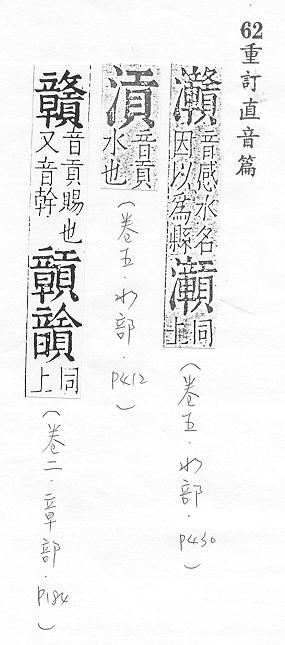 62重訂直音篇
灨音感水名
因以為縣
同上
(卷五．水部．P430)
音貢
水也
(卷五．水部．P412)
贛音貢賜也
又音幹
同上
(卷二．章部．P184)